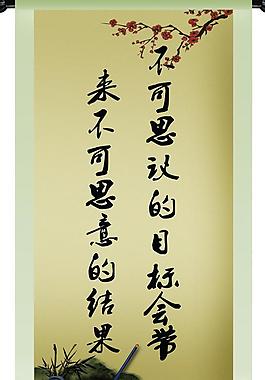 不可思议的目标会带
来不可思意的结果